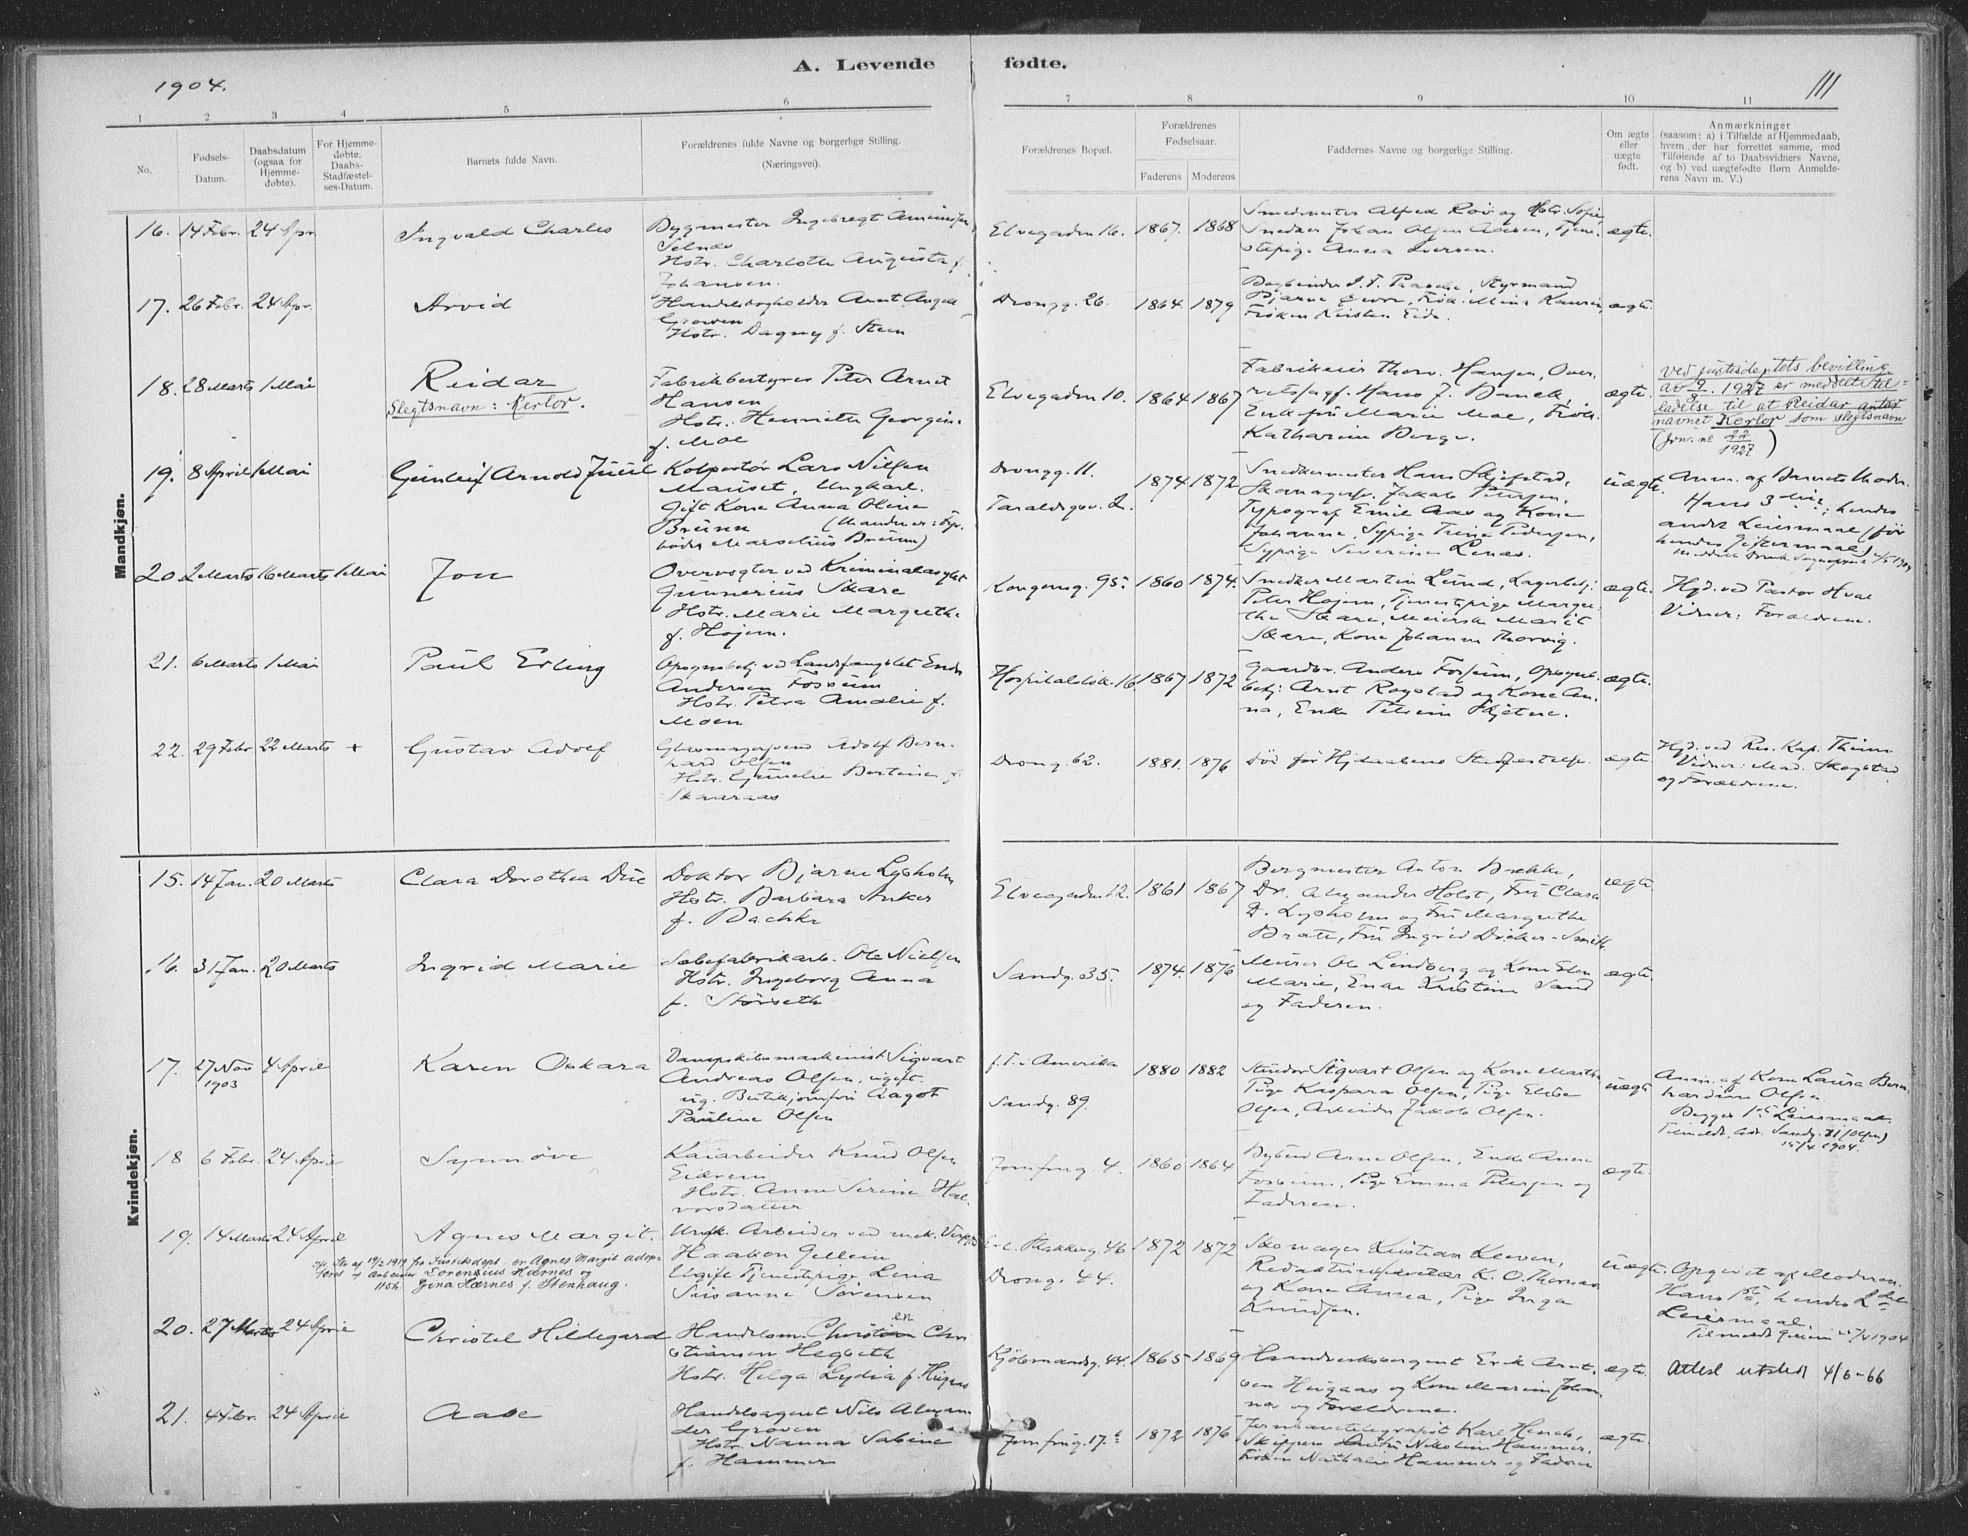 1904.
A. Levende fødte.
111
1 2 3 4 5 6 7 8 9 10 11
No.
Fødsels-
Datum.
Daabsdatum
(ogsaa for
Hjemme-
døbte).
For Hjemme-
døbte,
Daabs-
Stadfæstel-
ses-Datum.
Barnets fulde Navn.
Forældrenes fulde Navne og borgerlige Stilling.
(Næringsvei).
Forældrenes Bopæl.
Forældrenes
Fødselsaar.
Faderens Moderens
Faddernes Navne og borgerlige Stilling.
Om ægte
eller
uægte
født.
Anmærkninger
(saasom: a) i Tilfælde af Hjemmedaab,
hvem der har forrettet samme, med
Tilføiende af to Daabsvidners Navne,
og b) ved uægtefødte Børn Anmelde-
rens Navn m. V.)
Mandkjøn.
16. 14 Febr. 24 Apr. Ingvald Charles
Bygmester Ingebregt
Selnæs
Hstr. Charlotte Augusta f.
Johansen.
Elvegaden 16. 1867. 1868
Smedmester Alfred Rov og Hstr. Sofie,
Snedker Johan Olsen Aasen, Tjene-
stepige Anna Iversen.
ægte.
17. 26 Febr. 24 Apr. Arvid
Handelsbogholder Arnt Angell
Grøwen
Hstr. Dagny f. Steen
Drongg. 26. 1864. 1879
Bogbinder J. F. Paasche, Styrmand
Bjarne, Frøk. Mina
Frøken Kirsten Eide.
ægte.
18. 28 Marts 1 Mai Reidar
Slegtsnavn: Kerlor.
Fabrikbestyrer Peter Arnt
Hansen
Hstr. Henriette Georgine
f. Moe
Elvegaden 10. 1864 1867
Fabrikeier Thorv. Hansen, Over-
retssagf. Hans J.
Enkefru Marie Moe, Frøk.
Katharina Berge.
ægte.
Ved justisdeptets bevilling
av 9/8 1927 er meddelt til-
ladelse til at Reidar antar
navnet Kerlor som slegtsnavn
(Jrn. nr 22/1927)
19. 8 April 1 Mai Gunleif Arnold Juul
Kolportør Lars Nilsen
Mauset, Ungkarl.
Gift Kone Anna Oline
Bruun (Manden er: Fyr-
bøder Marselius Bruun)
Drongg. 11.
Taraldsgv. 2.
1874 1872
Snedkermester Hans Skjefstad,
Skomagersv. Jakob Petersen,
Typograf Emil Aas og Kone
Johanne, Sypige Trine Pedersen,
Sypige Severine Lenæs.
uægte.
Anm. af Barnets Moder.
Hans 3die; hendes
andet Leiermaal (før
hendes Giftermaal)
20. 2 Marts 16 Marts 1 Mai Jon
Overvogter ved Kriminalasylet
Gunnerius Skare
Hstr. Marie Margrethe
f. Højem.
Kongensg. 95. 1860 1874.
Snedker Martin Lund, Lagerbetj.
Peter Højem, Tjenestepige Margre-
the Skare, Meierske Marit
Skare, Kone Johanna Thorvig.
ægte.
Hjd. ved Pastor Hval
Vidner: Forældrene.
21. 6 Marts 1 Mai Paul Erling
Opsynsbetj. ved Landsfængslet
Andersen Fossum
Hstr. Petra Amalie f.
Moen
Hospitalsløk. 16 1867 1872
Gaardbr. Anders Fossum, Opsyns-
betj. Arnt Rogstad og Kone An-
na, Enke Petrine Skjetne.
ægte.
22. 29 Febr. 22 Marts + Gustav Adolf
Glasmagersvend Adolf Bern-
hard Olsen
Hstr. Gunelie Bertine f.
Skaaraas
Drong. 62. 1881. 1876
Død før Hjdaabens Stadfæstelse.
ægte
Hjd. ved Res. Kap. Thime
Vidner: Mad. Skogstad
og Forældrene.
Kvindekjøn.
15. 14 Jan. 20 Marts Clara Dorothea Due
Doktor Bjarne Lysholm
Hstr. Barbara Anker
f. Bachke
Elvegaden 12. 1861 1867
Bergmester Anton Brekke,
Dr. Alexander Holst, Fru Clara
D. Lysholm og Fru Margrethe
Brate, Fru Ingrid Dicker-Smith
ægte
16. 31 Jan. 20 Marts Ingrid Marie
Sæbefabrikarb. Ole Nielsen
Hstr. Ingeborg Anna
f. Størseth
Sandg. 35. 1874. 1876
Murer Ole Lindberg og Kone Elen
Marie, Enke Kristine Sand
og Faderen.
ægte
17. 27 Nov 1903 4 April Karen Oskara
Dampskibsmaskinist Sigvart
Andreas Olsen, ugift.
ug. Butikjomfru Aagot
Pauline Olsen
f. T. i Amerika
Sandg. 89.
1880 1882
Stuedor Sigvart Olsen og Kone Martha
Pige Kaspara Olsen, Pige Elise
Olsen, Arbeider Jakob Olsen.
uægte
Anm. af Kone Laura Bern-
hardine Olsen.
Begges 1ste Leiermaal.
18 6 Febr. 24 April Synnøve
Kaiarbeider Knud Olsen
Eidrem
Hstr. Anne Serine Hal-
vorsdatter
Jomfrug. 4. 1860 1864
Bybud Arne Olsen, Enke Anne
Fossum, Pige Emma Petersen og
Faderen.
ægte
19. 14 Marts 24 April Agnes Margit.
Ungk. Arbeider ved mek. Verksted
Haakon Gellein
Ugift Tjenestepige Lena
Susanne Sørensen
Drong. 44.
1872 1872
Skomager Kristian Leeven,
Redaktionssekretær K. O. Thornæs
og Kone Anna, Pige Inga
Knudsen.
uægte.
Opgivet af Moderen.
Hans 1ste, hendes 2det
Leiermaal.
19/2 1919 fra Justisdept. er Agnes Margit adop-
teret af Arbeider Lorensius Hærnes og
Hstr. Gina Hærnes f. Stenhaug.
20. 27 Marts 24 April Christel Hildegard
Handelsm. Christian Chri-
stiansen Hegbeth
Hstr. Helga Lydia f. Hugaas
Kjøbmandsg. 44. 1865 1869
Haandverksborgermester Erik Arnt-
sen Huigaas og Kone Marie Johan-
na og Forældrene.
ægte.
Attest utstedt 4/6-66
21. 4 Febr. 24 April Aase
Handelsagent Nils Alexan-
der Grøven
Hstr. Nanna Sabine
f. Hammer
Jomfrug. 17. 1872 1876
Jernbanetelegrafist Karl Hench,
Skipper Nikolai Hammer,
Frøken Nathalie Hammer og Faderen
ægte.